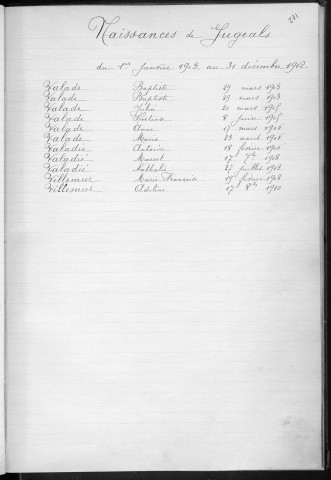 271
Naissances de Jugeals
du 1er janvier 1903 au 31 décembre 1912.
Valade Baptiste 29 mars 1903
Valade Baptiste 29 mars 1903
Valade Julia 21 mars 1905
Valade 8 juin 1905
Valade Anna 17 mars 1906
Valade Marie 23 août 1906
Valadié Antoine 18 février 1906
Valadié Marcel 17 7bre 1908
Valadié Nathalie 27 juillet 1912
Villemur Marie Françoise 19 février 1908
Villemur Adeline 17 8bre 1910